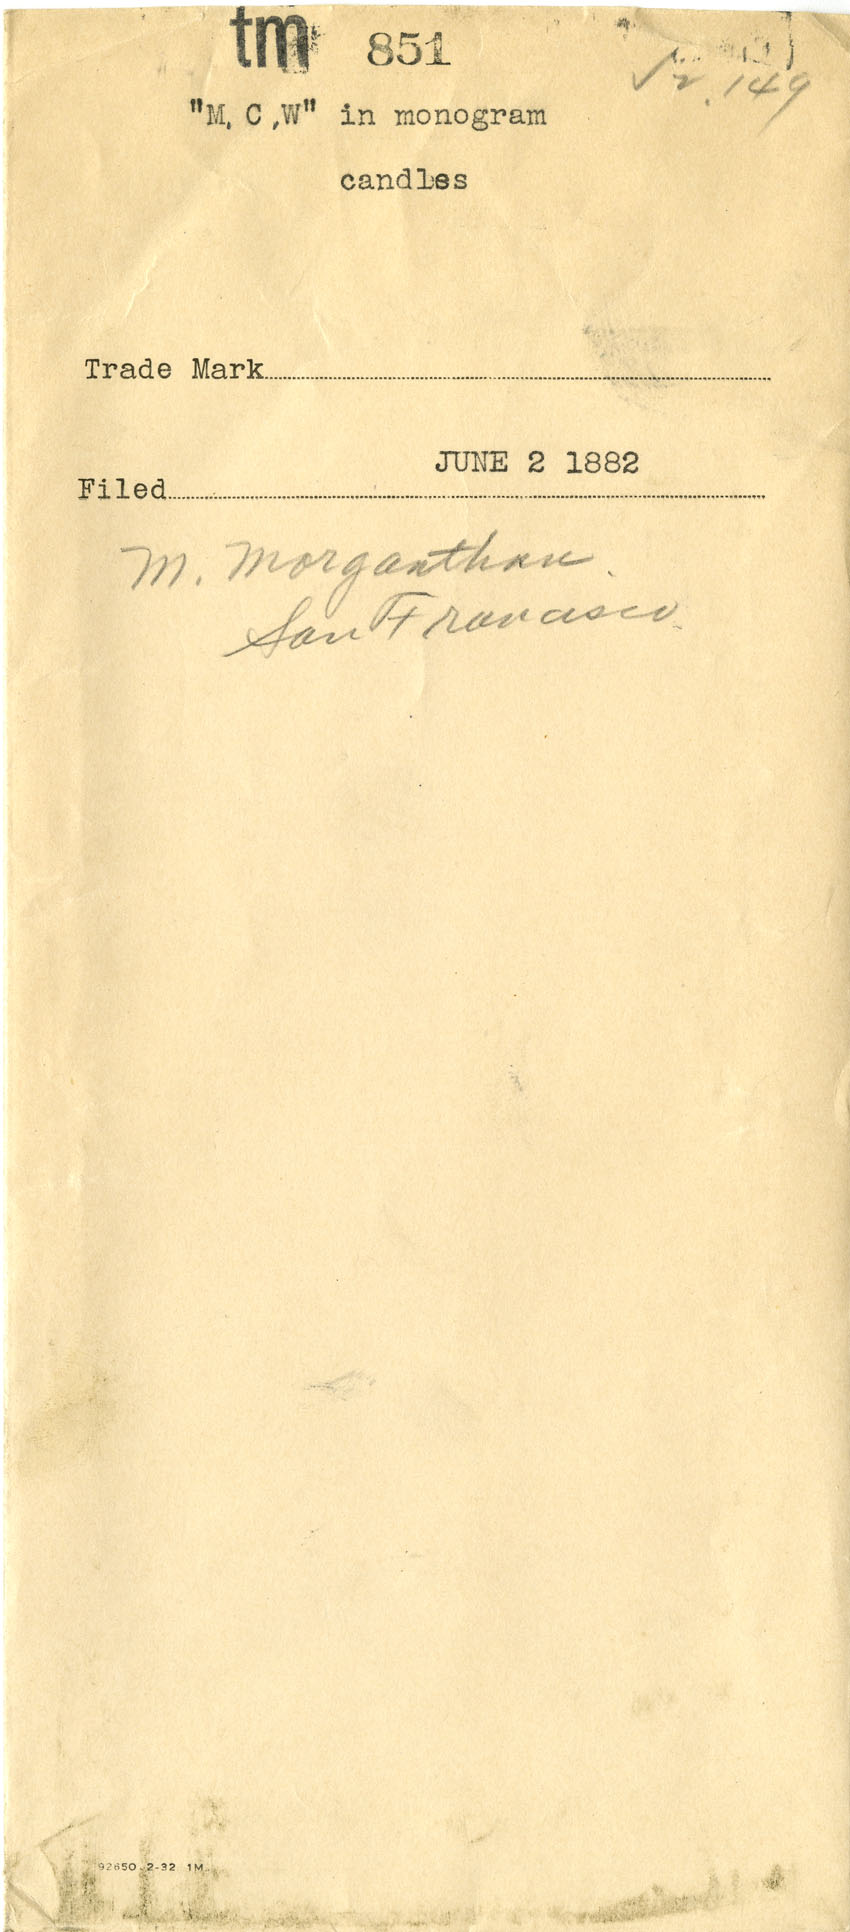 tm 851
√2.149
"M. C ,W" in monogram
candles
Trade Mark
JUNE 2 1882
Filed
M. Morganthau.
San Francisco.
92650 2-32 1M